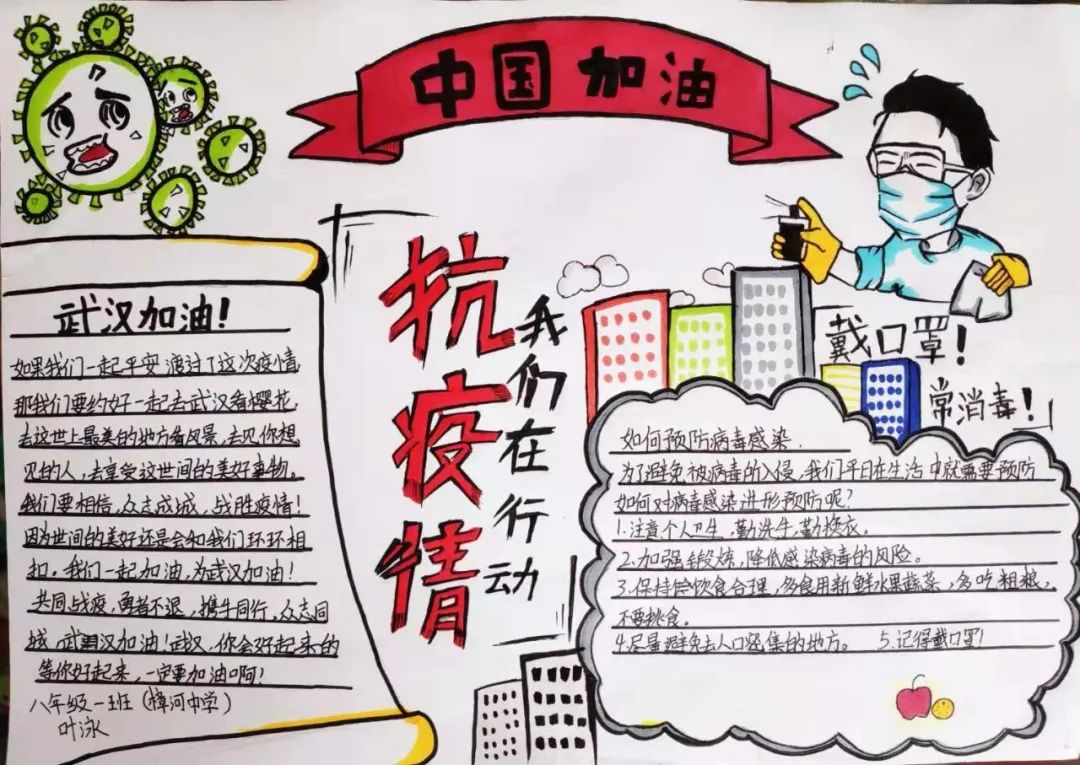 中国加油
武汉加油!
如果我们一起平安渡过了这次疫情
那我们要约好一起去武汉看樱花,
去这世上最美的地方看风景,去见你想
见的人,去享受这世间的美好事物。
我们要相信,众志成城,战胜疫情!
因为世间的美好还是会和我们环环相
扣。我们一起加油,为武汉加油!
共同战疫,勇者不退,携手同行,众志同
城,武汉加油!武汉,你会好起来的
等你好起来,一定要加油啊!
八年级一班(樟河中学)
叶泳
抗疫情
我们在行动
戴口罩!
常消毒!
如何预防病毒感染.
为了避免被病毒所入侵,我们平日在生活中就需要预防
如何对病毒感染进形预防呢?
1.注意个人卫生,勤洗手,勤换衣。
2.加强锻炼,降低感染病毒的风险。
3.保持饮食合理,多食用新鲜水果蔬菜,多吃粗粮,
不要挑食。
4.尽量避免去人口密集的地方。 5.记得戴口罩!